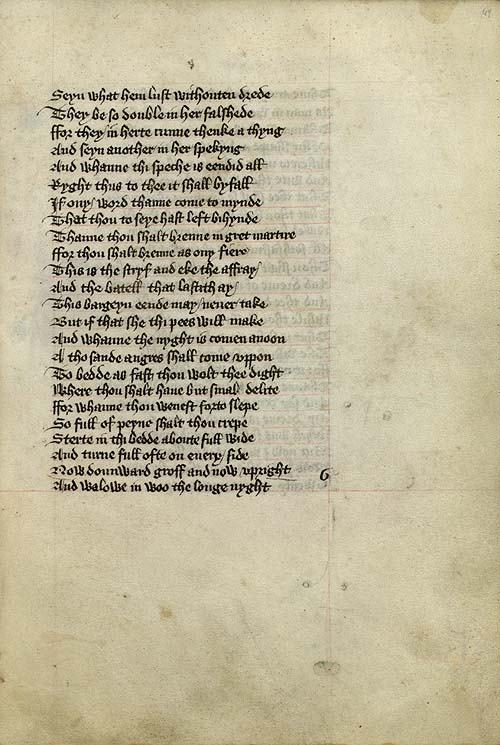 44
Seyn what hem lust withouten drede
They be so double in her falshede
ffor they in herte cunne thenke a thyng
And seyn another in her spekyng
And whanne thi speche is eendid all
Ryght thus to thee it shall byfall
If ony word thanne come to mynde
That thou to seye hast left bihynde
Thanne thou shalt brenne in gret martire
ffor thou shalt brenne as ony fiere
This is the stryf and eke the affray
And the batell that lastith ay
This bargeyn eende may neuer take
But if that she thi pees will make
And whanne the nyght is comen anoon
A thosande angres shall come vppon
To bedde as fast thou wolt thee dight
Where thou shalt haue but smal delite
ffor whanne thou wenest forto slepe
So full of peyne shalt thou crepe
Sterte in thi bedde aboute full wide
And turne full ofte on euery side
Now dounward groff and now vpright
And walowe in woo the longe nyght
6